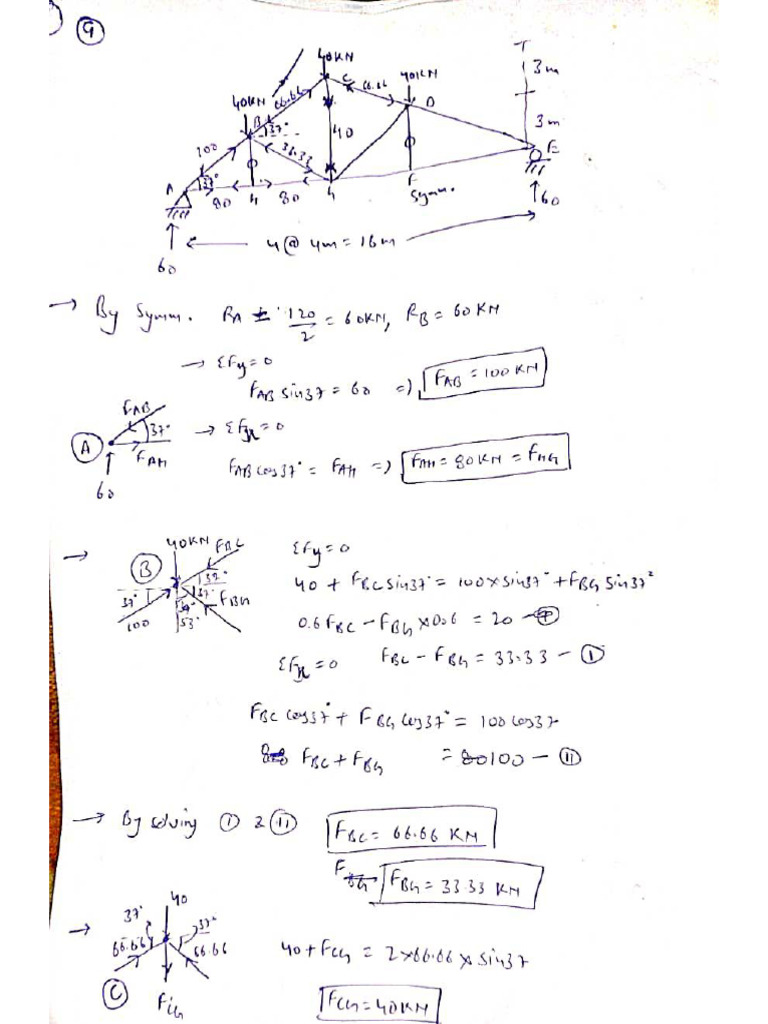 9
40KN
40KN
C
66.66
40KN
66.66
B
37°
D
3m
3m
100
40
33.33
E
A
37°
80
H
80
G
F
Symm.
60
4 @ 4m = 16m
60
→ By Symm. RA = 120/2 = 60KN, RB = 60KN
→ ΣFy=0
FAB sin37 = 60 => FAB = 100KN
FAB
37°
A
FAH
60
→ ΣFx=0
FAB cos37° = FAH => FAH = 80KN = FHG
→
B
40KN
FBC
37°
37°
37°
FBG
100
53°
ΣFy=0
40 + FBC sin37° = 100 x sin37° + FBG sin37°
0.6 FBC - FBG x 0.6 = 20
ΣFx=0 FBC - FBG = 33.33 - I
FBC cos37° + FBG cos37° = 100 cos37
FBC + FBG = 100 - II
→ By solving I & II FBC = 66.66 KN
FBG = 33.33 KN
→
40
37°
37°
66.66
66.66
C
FCG
40 + FCG = 2 x 66.66 x sin37
FCG = 40KN